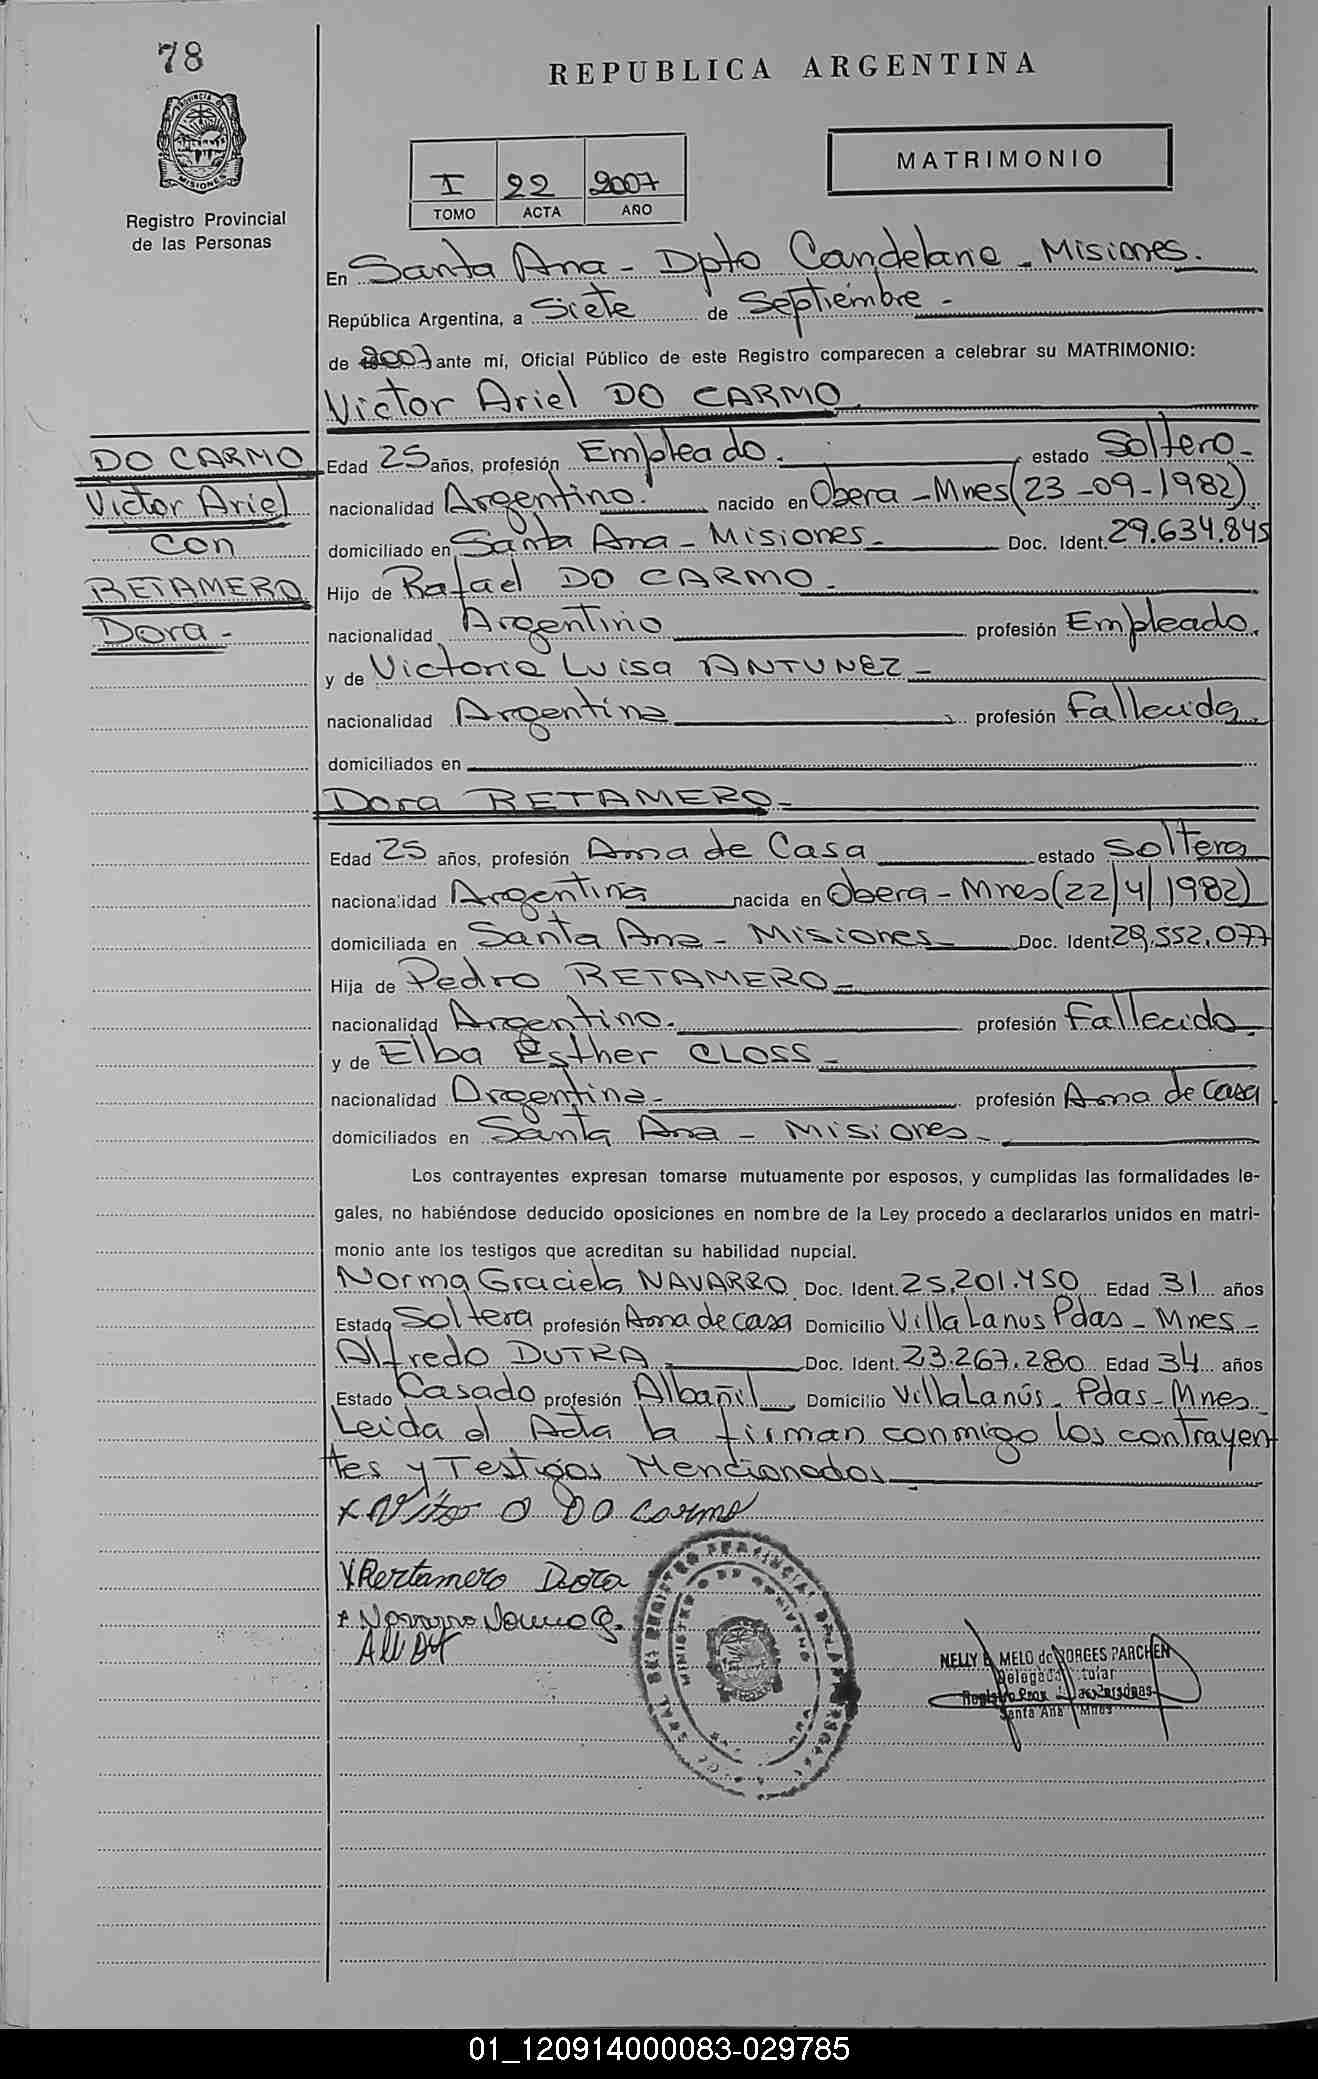 78
REPUBLICA ARGENTINA
PROVINCIA DE
MISIONES
Registro Provincial
de las Personas
I 22 2007
TOMO ACTA AÑO
MATRIMONIO
En Santa Ana - Dpto Candelaria - Misiones.
República Argentina, a Siete de Septiembre -
de 2007 ante mí, Oficial Público de este Registro comparecen a celebrar su MATRIMONIO:
Victor Ariel DO CARMO
DO CARMO
Victor Ariel
con
RETAMERO
Dora -
Edad 25 años, profesión Empleado. estado Soltero -
nacionalidad Argentino. nacido en Obera - Mnes (23-09-1982)
domiciliado en Santa Ana - Misiones - Doc. Ident. 29.634.845
Hijo de Rafael DO CARMO -
nacionalidad Argentino profesión Empleado.
y de Victoria Luisa ANTUNEZ -
nacionalidad Argentina profesión Fallecida.
domiciliados en
Dora RETAMERO -
Edad 25 años, profesión Ama de Casa estado Soltera
nacionalidad Argentina nacida en Obera - Mnes (22/4/1982)
domiciliada en Santa Ana - Misiones - Doc. Ident 29.552.077
Hija de Pedro RETAMERO -
nacionalidad Argentino. profesión Fallecido.
y de Elba Esther CLOSS -
nacionalidad Argentina - profesión Ama de casa
domiciliados en Santa Ana - Misiones -
Los contrayentes expresan tomarse mutuamente por esposos, y cumplidas las formalidades le-
gales, no habiéndose deducido oposiciones en nombre de la Ley procedo a declararlos unidos en matri-
monio ante los testigos que acreditan su habilidad nupcial.
Norma Graciela NAVARRO Doc. Ident. 25.201.450 Edad 31 años
Estado Soltera profesión Ama de casa Domicilio Villa Lanus Pdas - Mnes -
Alfredo DUTRA Doc. Ident. 23.267.280 Edad 34 años
Estado Casado profesión Albañil Domicilio Villa Lanús - Pdas - Mnes
Leida el Acta la firman conmigo los contrayen
tes y Testigos Mencionados
x Vitor A Do Carmo
x Rertamero Dora
x Navarro Norma G.
NELLY MELO de BORGES PARCHEN
Delegada Titular
Registro Prov. de las Personas
Santa Ana Mnes
01_120914000083-029785